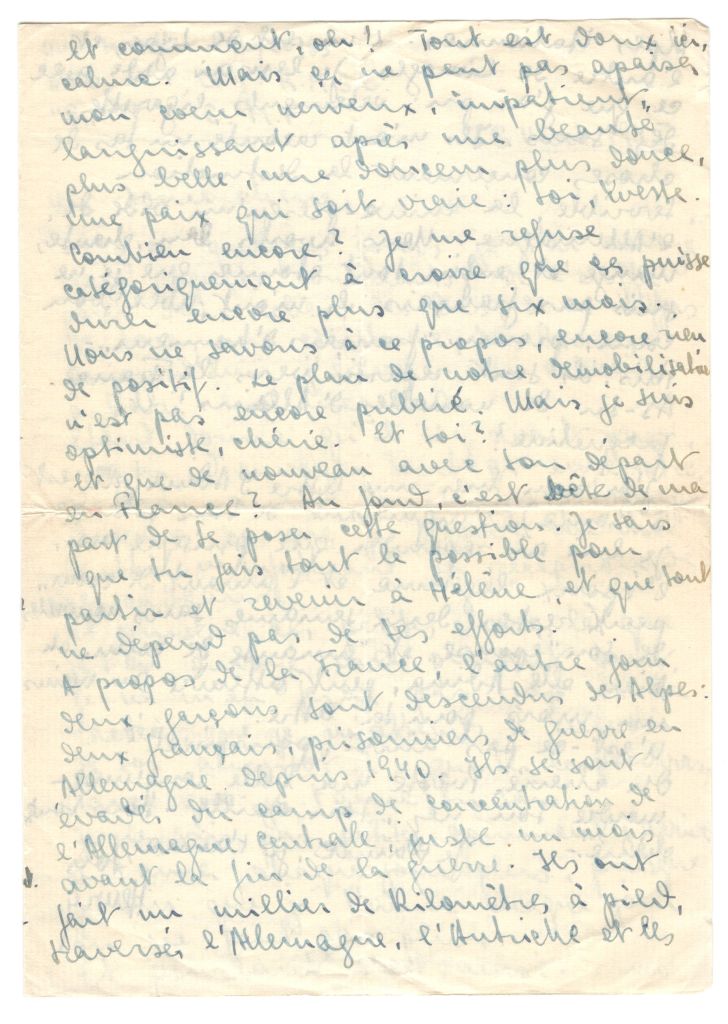 Et comment, oh! Tout est doux ici,
calme. Mais ça ne peut pas apaiser
mon coeur nerveux, impatient,
languissant après une beauté
plus belle, une douceur plus douce,
une paix qui soit vraie. Toi,
Combien encore? Je me refuse
catégoriquement à croire que ça puisse
durer encore plus que six mois.
Nous ne savons à ce propos, encore rien
de positif. Le plan de notre démobilisation
n'est pas encore publié. Mais je suis
optimiste, chérie. Et toi?
Et que de nouveau avec ton départ
en France? Au fond, c'est bête de ma
part de te poser cette question. Je sais
que tu fais tout le possible pour
partir et revenir à Hélène, et que tout
ne dépend pas de tes efforts.
A propos de la France, l'autre jour
deux garçons sont descendus des Alpes:
deux français, prisonniers de guerre en
Allemagne depuis 1940. Ils se sont
évadés du camp de concentration de
l'Allemagne centrale, juste un mois
avant la fin de la guerre. Ils ont
fait un millier de kilomètres à pied,
traversés l'Allemagne, l'Autriche et les